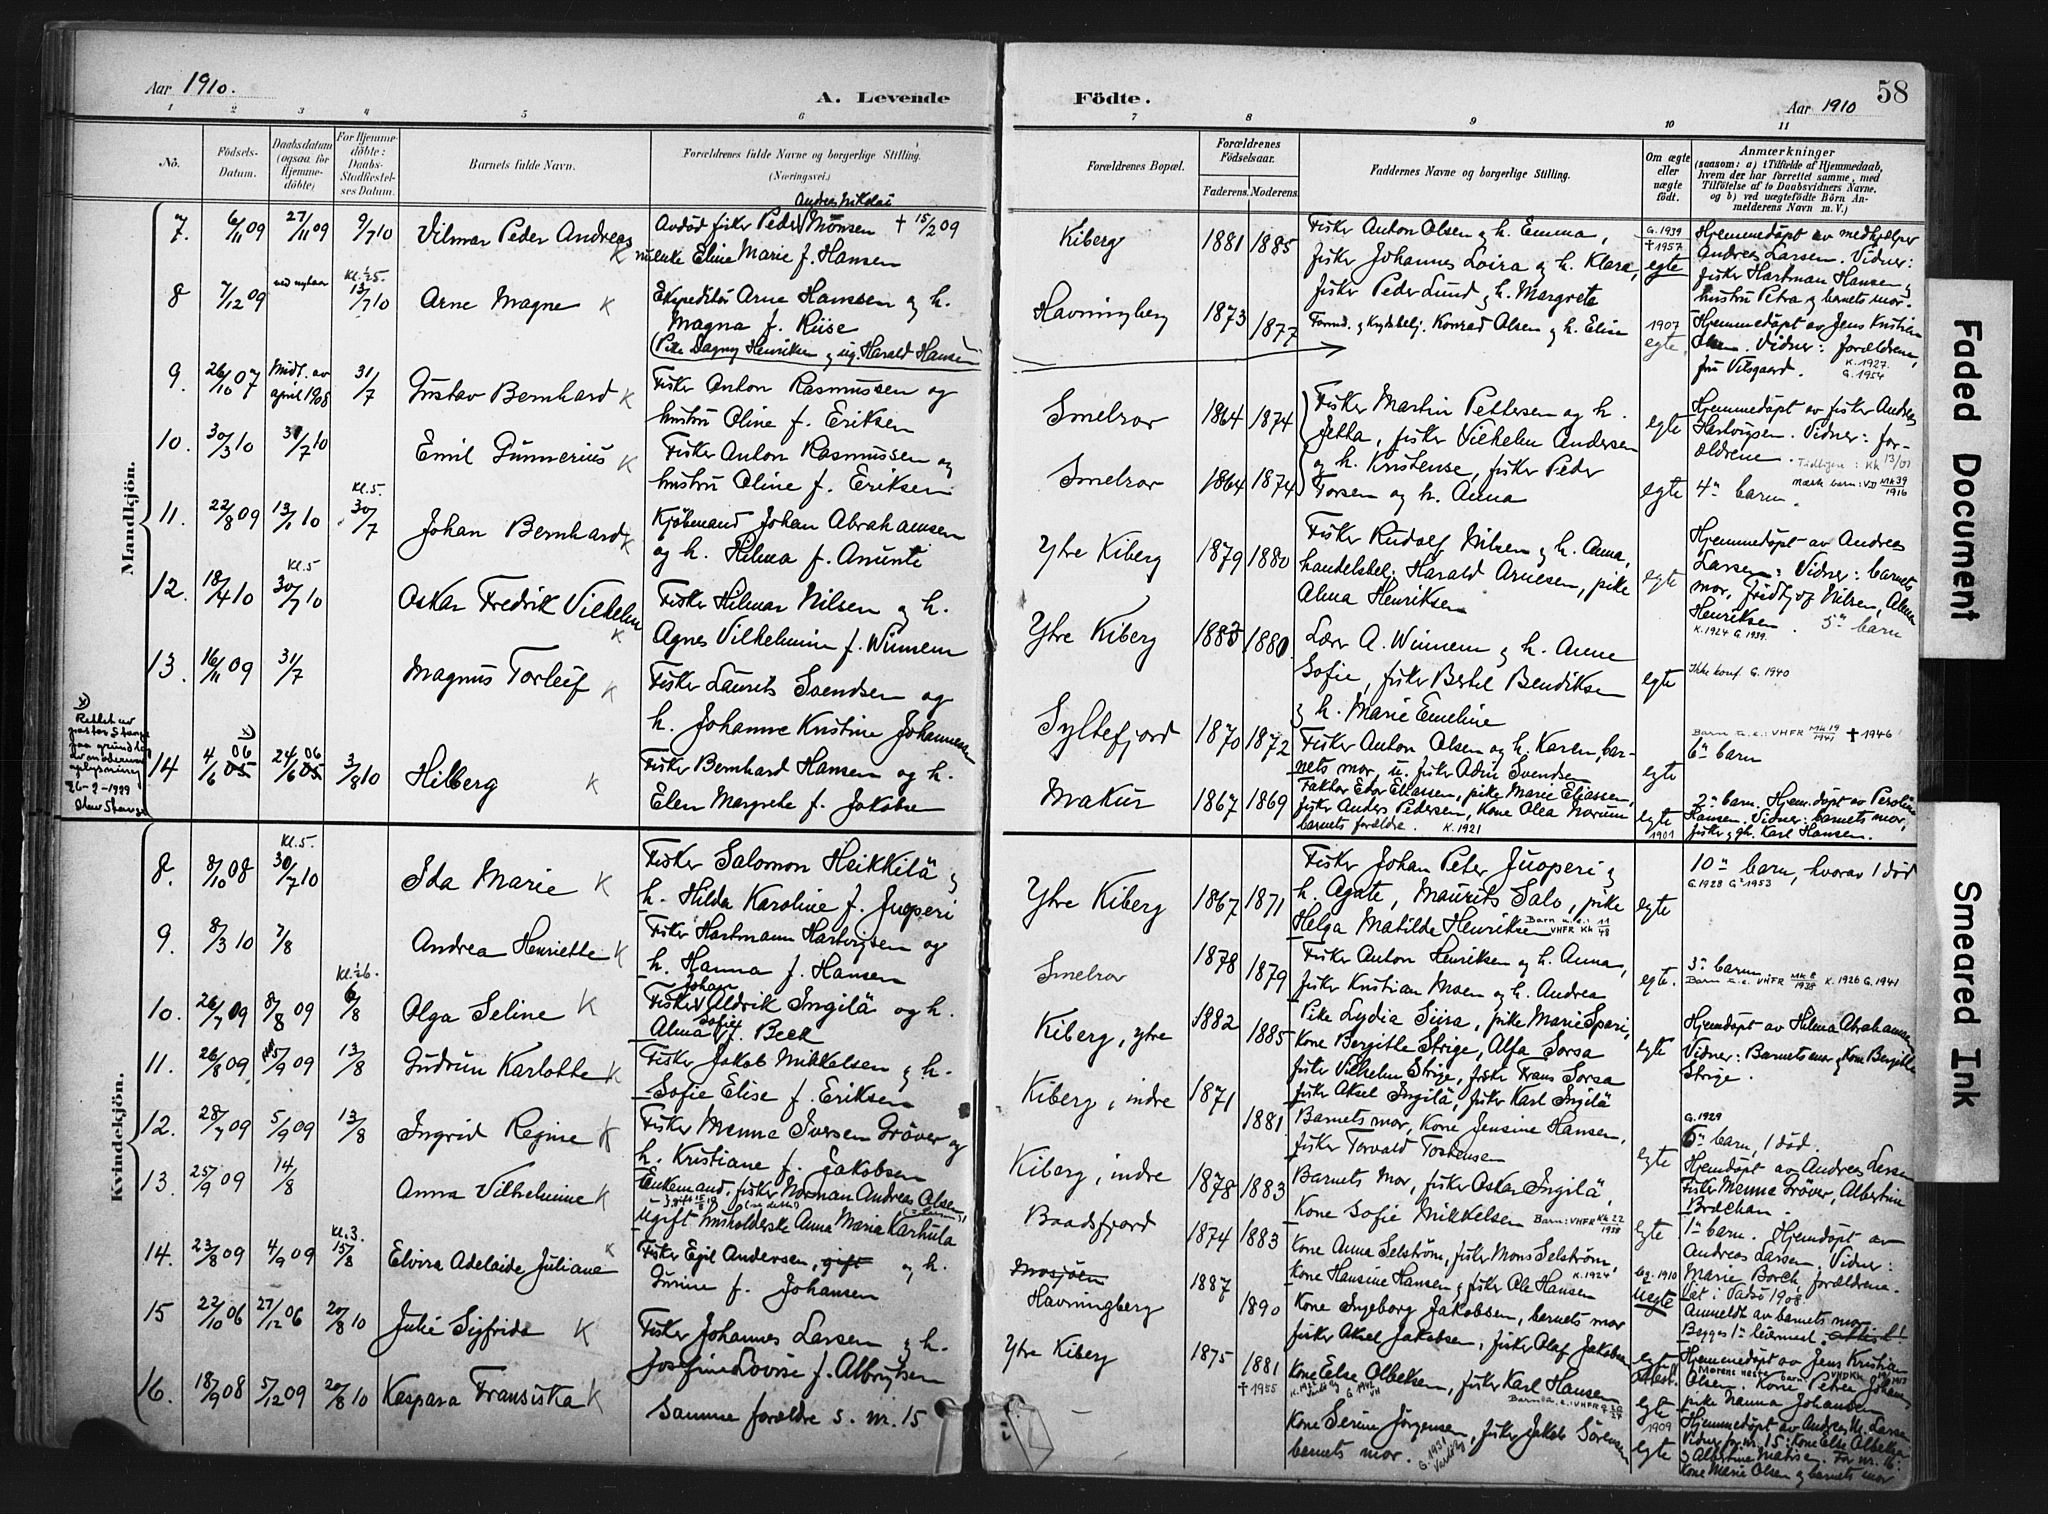 Aar 1910.
A. Levende
1 2 3 4 5 6
No.
Födsels-Datum.
Daabsdatum (ogsaa for Hjemme-döbte)
For Hjemme-döbte: Daabs-Stadfæstel-ses Datum.
Barnets fulde Navn.
Forældrenes fulde Navne og borgerlige Stilling.
(Næringsvei.)
Mandkjön.
Andreas Nikolai
7. 6/11 09 27/11 09 9/7 10 Vilmar Peder Andreas K Avdöd fisker Peder Mönsen † 15/2 09
enke Eline Marie f. Hansen
Kl. 1/2 5.
8 7/12 09 ved nytaar 13/7 10 Arne Magne K Ekspeditör Arne Hanssen og h.
Magna f. Riise
(Pike Dagny Henriksen og ug. Harald Hansen
9. 26/10 07 Midt. av april 1908 31/7 Gustav Bernhard K Fisker Anton Rasmussen og
hustru Oline f. Eriksen
10. 30/3 10 31/7 10 Emil Gunnerius K Fisker Anton Rasmussen og
hustru Oline f. Eriksen
Kl. 5.
11. 22/8 09 13/1 10 30/7 Johan Bernhard K Kjöbmand Johan Abrahamsen
og h. Hilma f. Anunti
Kl. 5
12. 18/4 10 30/7 10 Oskar Fredrik Vilhelm K Fisker Hilmar Nilsen og h.
Agnes Vilhelmine f. Winnem
13. 16/11 09 31/7 Magnus Torleif K Fisker Laurits Svendsen og
h. Johanne Kristine Johannesen
x) Rettet av pastor Stange paa grundlag av modernes oplysning 26-2-1929 Olav Stange
14 4/6 05 06 x) 24/6 05 06 3/8 10 Hilberg K Fisker Bernhard Hansen og h.
Elen Margrethe f. Jakobsen
Kvindekjön.
Kl. 5.
8. 8/10 08 30/7 10 Ida Marie K Fisker Salomon Heikkilä og
h. Hilda Karoline f. Juoperi
9. 8/3 10 7/8 Andrea Henriette K Fisker Hartmann Hartvigsen og
h. Hanna f. Hansen
Kl. 1/2 6.
10. 26/7 09 8/8 09 6/8 Olga Seline K Fisker Johan Aldrik Ingilä og h.
Alma Sofie f. Beck
11. 26/8 09 5/9 09 13/8 Gudrun Karlotte K Fisker Jakob Mikkelsen og h.
Sofie Elise f. Eriksen
12. 28/7 09 5/9 09 13/8 Ingrid Regine K Fisker Menne Iversen Gröver og
h. Kristiane f. Jakobsen
13. 25/9 09 14/8 Anna Vilhelmine K Enkemand, fisker Norman Andreas Olsen,
Ugift husholderske Anna Maria Karhula
Kl. 3.
14. 23/8 09 4/9 09 15/8 Elvira Adelaide Juliane K Fisker Egil Andersen, gift og h.
Gurine f. Johansen
15 22/10 06 27/12 06 20/8 10 Julie Sigfrida K Fisker Johannes Larsen og h.
Josefine Lovise f. Albrigtsen
16. 18/9 08 5/12 09 20/8 10 Kaspara Fransiska K Samme forældre s. nr. 15
Födte.
Aar 1910 58
7 8 9 10 11
Forældrenes Bopæl.
Forældrenes Födselsaar.
Faderens. Moderens.
Faddernes Navne og borgerlige Stilling.
Om ægte eller uægte födt.
Anmærkninger
(saasom: a) i Tilfælde af Hjemmedaab, hvem der har forrettet samme, med Tilföielse af to Daabsvidners Navne, og b) ved uægtefödte Börn Anmelderens Navn m. V.)
Kiberg 1881 1885 Fisker Anton Olsen og h. Emma,
fisker Johannes Loira og h. Klara,
fisker Peder Lund og h. Margreta
G. 1939 † 1957 egte
Hjemmedöpt av medhjælper
Andreas Larsen. Vidner:
fisker Hartman Hansen og
hustru Petra og barnets mor.
Havningberg 1873 1877 Formd. og Kredsbelj. Konrad Olsen og h. Elise
1907 egte.
Hjemmedöpt av Jens Kristian
Olsen. Vidner: forældrene,
fru Vilsgaard. K. 1927. G. 1954
Smelror 1864 1874 Fisker Martin Pettersen og h.
Jetha, fisker Vilhelm Andersen
egte
Hjemmedöpt av fisker Andreas
Hartvigsen. Vidner: for-
ældrene. Tidligere: Kk 13/01
Smelror 1864 1874 og h. Kristense, fisker Peder
Torsen og h. Anna
egte 4de barn. Næste barn: VD Mk 39/1916
Ytre Kiberg 1879 1880 Fisker Rudolf Nilsen og h. Anna,
handelsbet. Harald Arnesen, pike
Alma Henriksen
egte
Hjemmedöpt av Andreas
Larsen: Vidner: barnets
mor, Fridtjof Nilsen, Alma
Henriksen. 5te barn
K. 1924 G. 1939.
Ytre Kiberg 1883 1880 Lærer A. Winnem og h. Anne
Sofie, fisker Bertel Bendiksen
og h. Marie Emeline
egte Ikke konf. G. 1940
Syltefjord 1870 1872 Fisker Anton Olsen og h. Karen, bar-
nets mor u. fisker Adin Svendsen
egte
Barn u.e.: VHFR Mk 19/1941 † 1946
6te barn
Makur 1867 1869 Faktor Edor Eliassen, pike Marie Eliassen,
fisker Anders Pedersen, Kone Olea Norum
barnets forældre. K. 1921
egte 1901
2det barn. Hjem.döpt av Peroline
Hansen. Vidner: barnets mor,
fisker og gh. Karl Hansen.
Ytre Kiberg 1867 1871 Fisker Johan Peter Juoperi og
h. Agate, Maurits Salo, pike
Helga Matilde Henriksen Barn u.e.: VHFR Kk 11/48
egte
10de barn, hvorav 1 död
G. 1928 G2 1953
Smelror 1878 1879 Fisker Anton Henriksen og h. Anna,
fisker Kristian Moen og h. Andrea
egte.
3de barn
Barn u.e. VHFR Mk 8/1938 K. 1926 G. 1941
Kiberg, ytre 1882 1885 Pike Lydia Siira, pike Marie Spari,
Kone Bergithe Strige, Alfa Sorsa
fisker Vilhelm Strige, fisker Frans Sorsa
fisker Aksel Ingilä, fisker Karl Ingilä
egte
Hjemdöpt av Hilma Abrahamsen
Vidner: Barnets mor og Kone Bergithe
Strige.
Kiberg, indre 1871 1881 Barnets mor, Kone Jensine Hansen,
fisker Torvald Torstensen
egte
G. 1929
6te barn, 1 död.
Hjemdöpt av Andreas Larsen
Kiberg, indre 1878 1883 Barnets Mor, fisker Oskar Ingilä,
Kone Sofie Mikkelsen Barn: VHFR Kk 22/1938
egte
Fisker Menne Gröver, Albertine
Brækhan.
1ste barn. Hjemdöpt av
Andreas Larsen, Vidner:
Marie Borch, forældrene.
Baadsfjord 1874 1883 Kone Anna Selström, fisker Mons Selström,
Kone Hansine Hansen og fisker Ole Hansen K. 1924
leg. 1910 Uegte
Læt. i Vadsö 1908.
Anmeldt av barnets mor
Begges 1ste leiermaal. attest!
Mosjöen
Havningberg 1887 1890 Kone Ingeborg Jakobsen, barnets mor
fisker Aksel Jakobsen, fisker Olaf Jakobsen
egte attest.
Hjemmedöpt av Jens Kristian
Olsen. Kone Petrea Johans.
pike Nanna Johansen
Ytre Kiberg 1875 1881 † 1955 Kone Else Olbeksen, fisker Karl Hansen
Barn u.e.: VHFR
egte 1909
Hjemmedöpt av Andreas M. Larsen
Vidner for nr. 15: Kone Else Albeksen
og Albertine Mathisen. For nr. 16:
Kone Marie Olsen og barnets mor
Kone Serine Jörgensen, fisker Jakob Sörensen
barnets mor. G. 1931 Vardö by
egte
Faded Document
Smeared Ink